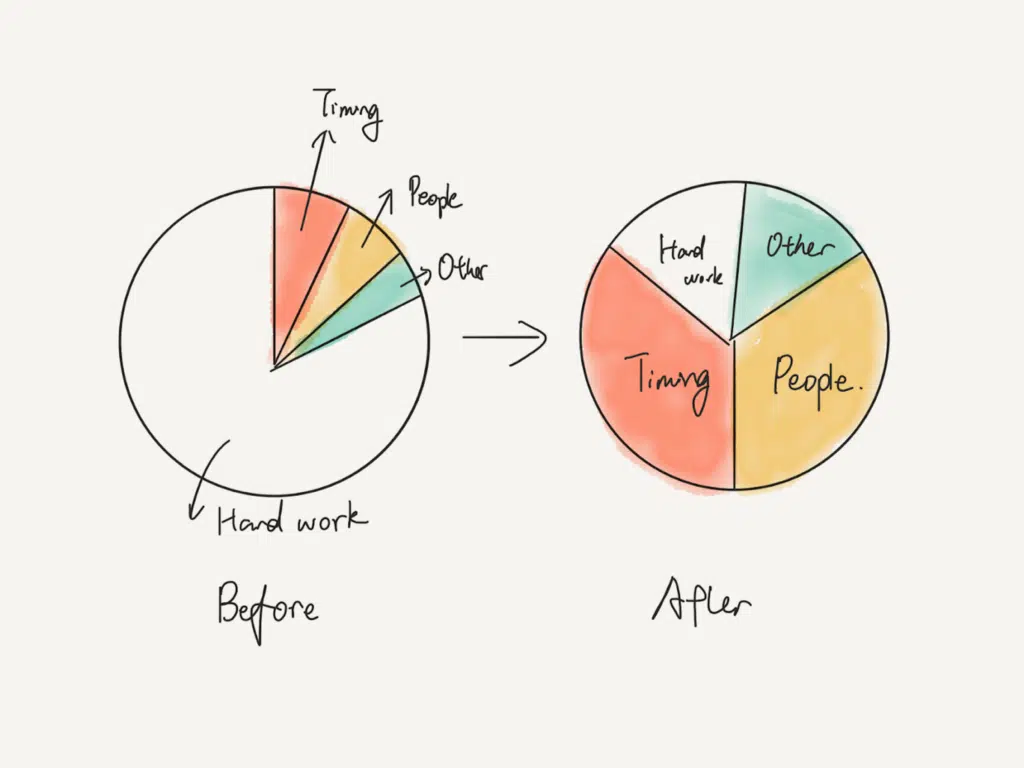 Timing
People
Other
Hard work
Before
Hard
work
Other
Timing
People.
After